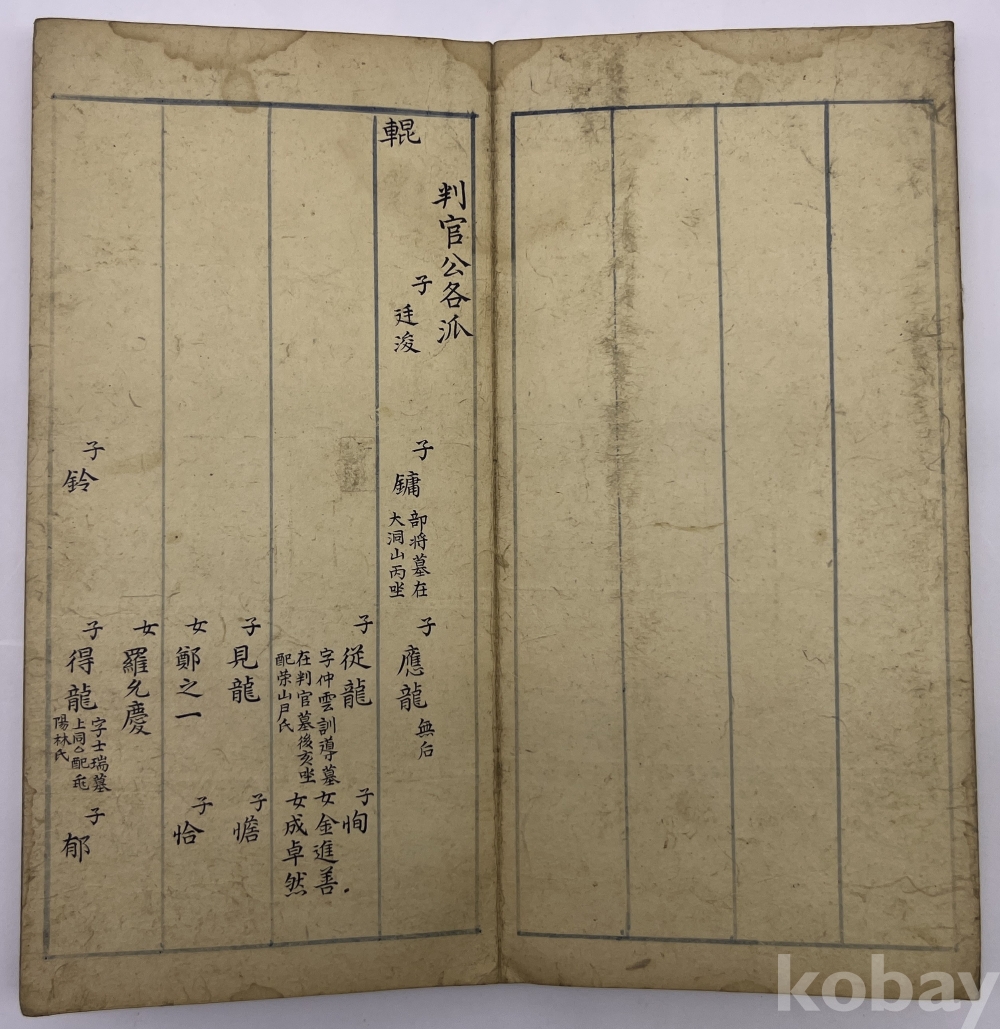 輥
判官公各派
子
廷浚
子
鏞
部将墓在
大洞山丙坐
子
應龍
無后
子
從龍
字仲雲訓導墓
在判官墓後亥坐
配荣山尸氏
子
恂
女金進善
女成卓然
子
見龍
子
憺
女
鄭之一
子
恰
女
羅允慶
子
鈴
子
得龍
字士瑞墓
上同
配
陽林氏
子
郁
kobay